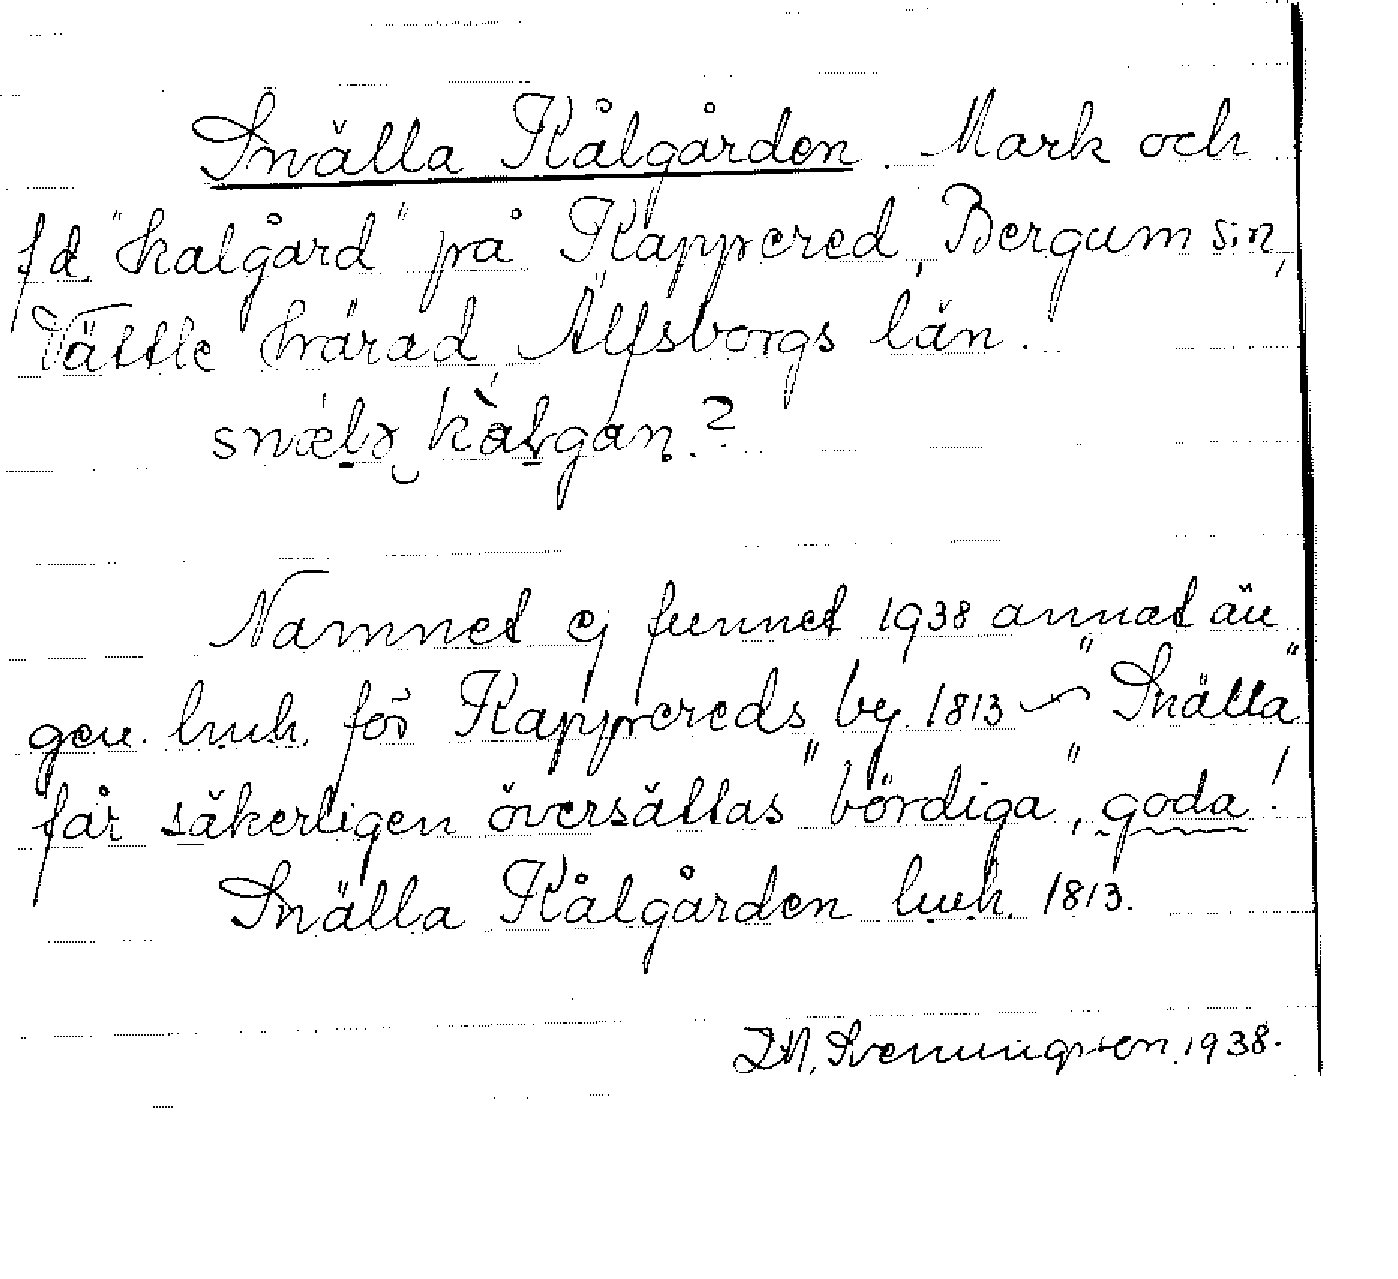 Snälla Kålgården. Mark och
f.d. "kålgård" på Kappered, Bergum sn,
Vättle härad, Älfsborgs län.
Namnet ej funnet 1938 annat än
gen. lmh. för Kappereds by 1813 – "Snälla"
får säkerligen översättas "bördiga", goda!
Snälla Kålgården lmh. 1813.
Svenungsson 1938.